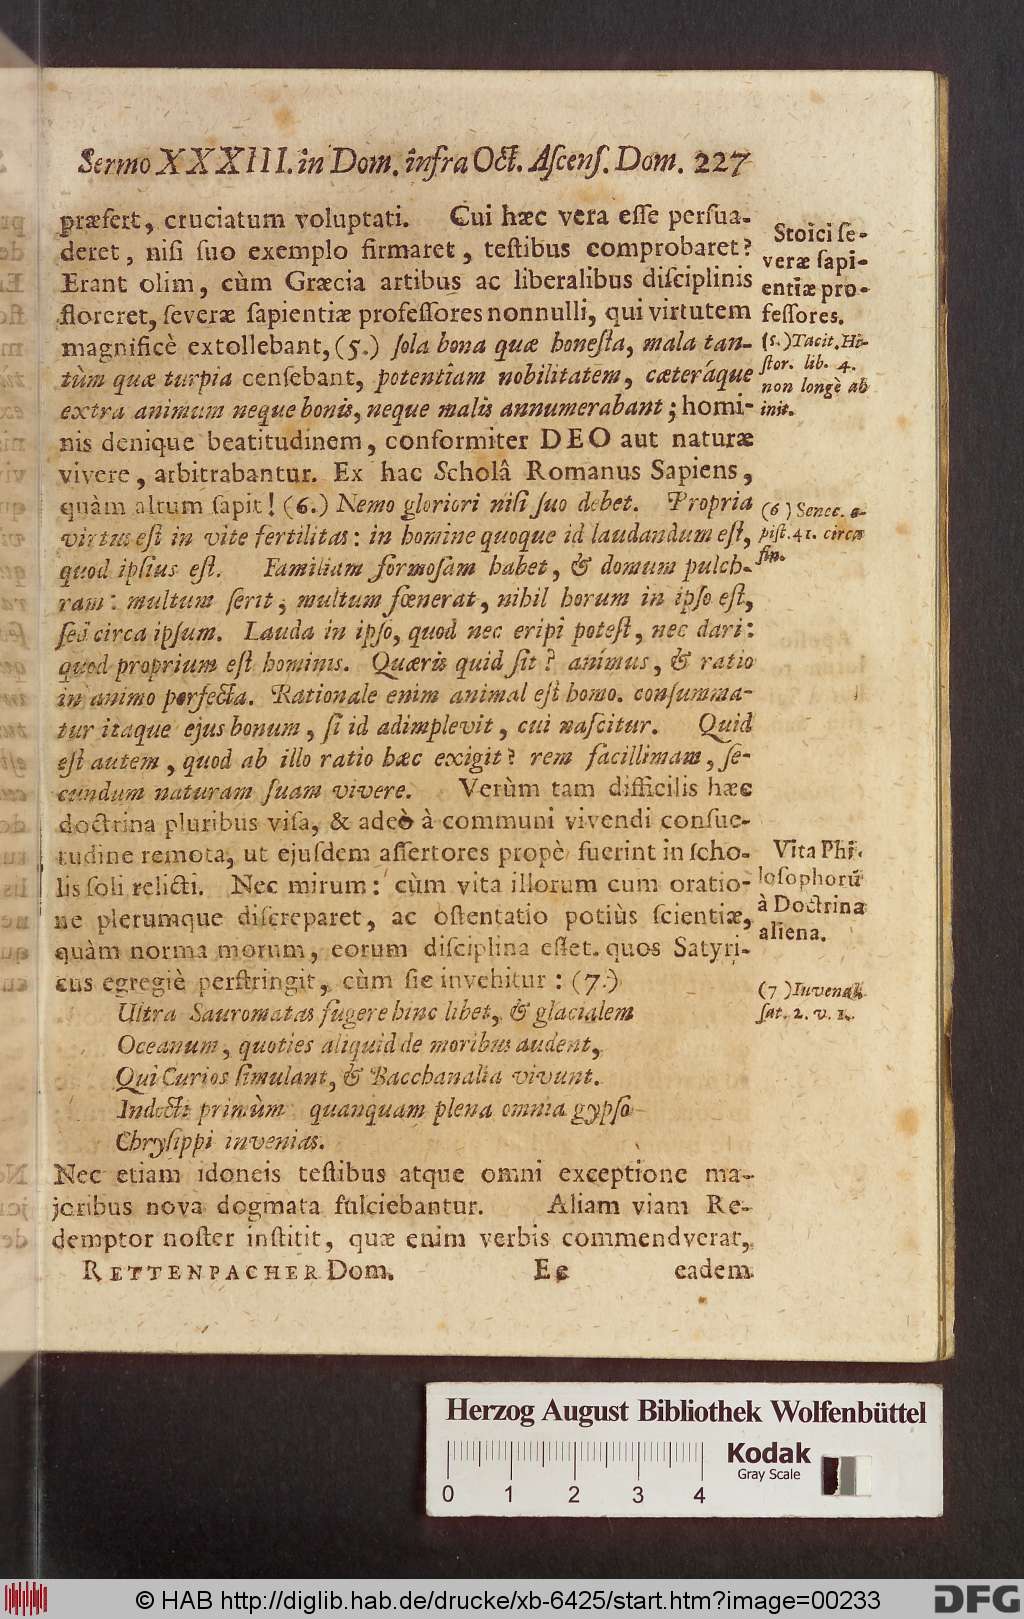 Sermo XXXIII. in Dom. infra Oct. Ascenſ. Dom. 227
præfert, cruciatum voluptati. Cui hæc vera eſſe perſua-
deret, niſi ſuo exemplo firmaret, teſtibus comprobaret?
Erant olim, cùm Græcia artibus ac liberalibus diſciplinis
floreret, ſeveræ ſapientiæ profeſſores nonnulli, qui virtutem
magnificè extollebant, (5.) ſola bona quæ honeſta, mala tan-
tùm quæ turpia cenſebant, potentiam nobilitatem, cæteráque
extra animum neque bonis, neque malis annumerabant; homi-
nis denique beatitudinem, conformiter DEO aut naturæ
vivere, arbitrabantur. Ex hac Scholâ Romanus Sapiens,
quàm altum ſapit! (6.) Nemo gloriari niſi ſuo debet. Propria
virtus eſt in vite fertilitas: in homine quoque id laudandum eſt,
quod ipſius eſt. Familiam formoſam habet, & domum pulch-
ram: multum ſerit, multum fœnerat, nihil horum in ipſo eſt,
ſed circa ipſum. Lauda in ipſo, quod nec eripi poteſt, nec dari:
quod proprium eſt hominis. Quæris quid ſit? animus, & ratio
in animo perfecta. Rationale enim animal eſt homo. conſumma-
tur itaque ejus bonum, ſi id adimplevit, cui naſcitur. Quid
eſt autem, quod ab illo ratio hæc exigit? rem facillimam, ſe-
cundum naturam ſuam vivere. Verùm tam difficilis hæc
doctrina pluribus viſa, & adeò à communi vivendi conſue-
tudine remota, ut ejuſdem aſſertores propè fuerint in ſcho-
lis ſoli relicti. Nec mirum: cùm vita illorum cum oratio-
ne plerumque diſcreparet, ac oſtentatio potiùs ſcientiæ,
quàm norma morum, eorum diſciplina eſſet. quos Satyri-
cus egregiè perſtringit, cùm ſic invehitur: (7.)
Ultra Sauromatas fugere hinc libet, & glacialem
Oceanum, quoties aliquid de moribus audent,
Qui Curios ſimulant, & Bacchanalia vivunt.
Indocti primùm quanquam plena omnia gypſo
Chryſippi invenias.
Nec etiam idoneis teſtibus atque omni exceptione ma-
joribus nova dogmata fulciebantur. Aliam viam Re-
demptor noſter inſtitit, quæ enim verbis commendverat,
RETTENPACHER Dom. Ee eadem
Stoici ſe-
veræ ſapi-
entiæ pro-
feſſores.
(5.) Tacit. Hi-
ſtor. lib. 4.
non longè ab
init.
(6) Senec. e-
piſt. 41. circa
fin.
Vita Phi-
loſophorũ
à Doctrina
aliena.
(7) Iuvenal.
ſat. 2. v. 1.
Herzog August Bibliothek Wolfenbüttel
Kodak
Gray Scale
0 1 2 3 4
© HAB http://diglib.hab.de/drucke/xb-6425/start.htm?image=00233
DFG